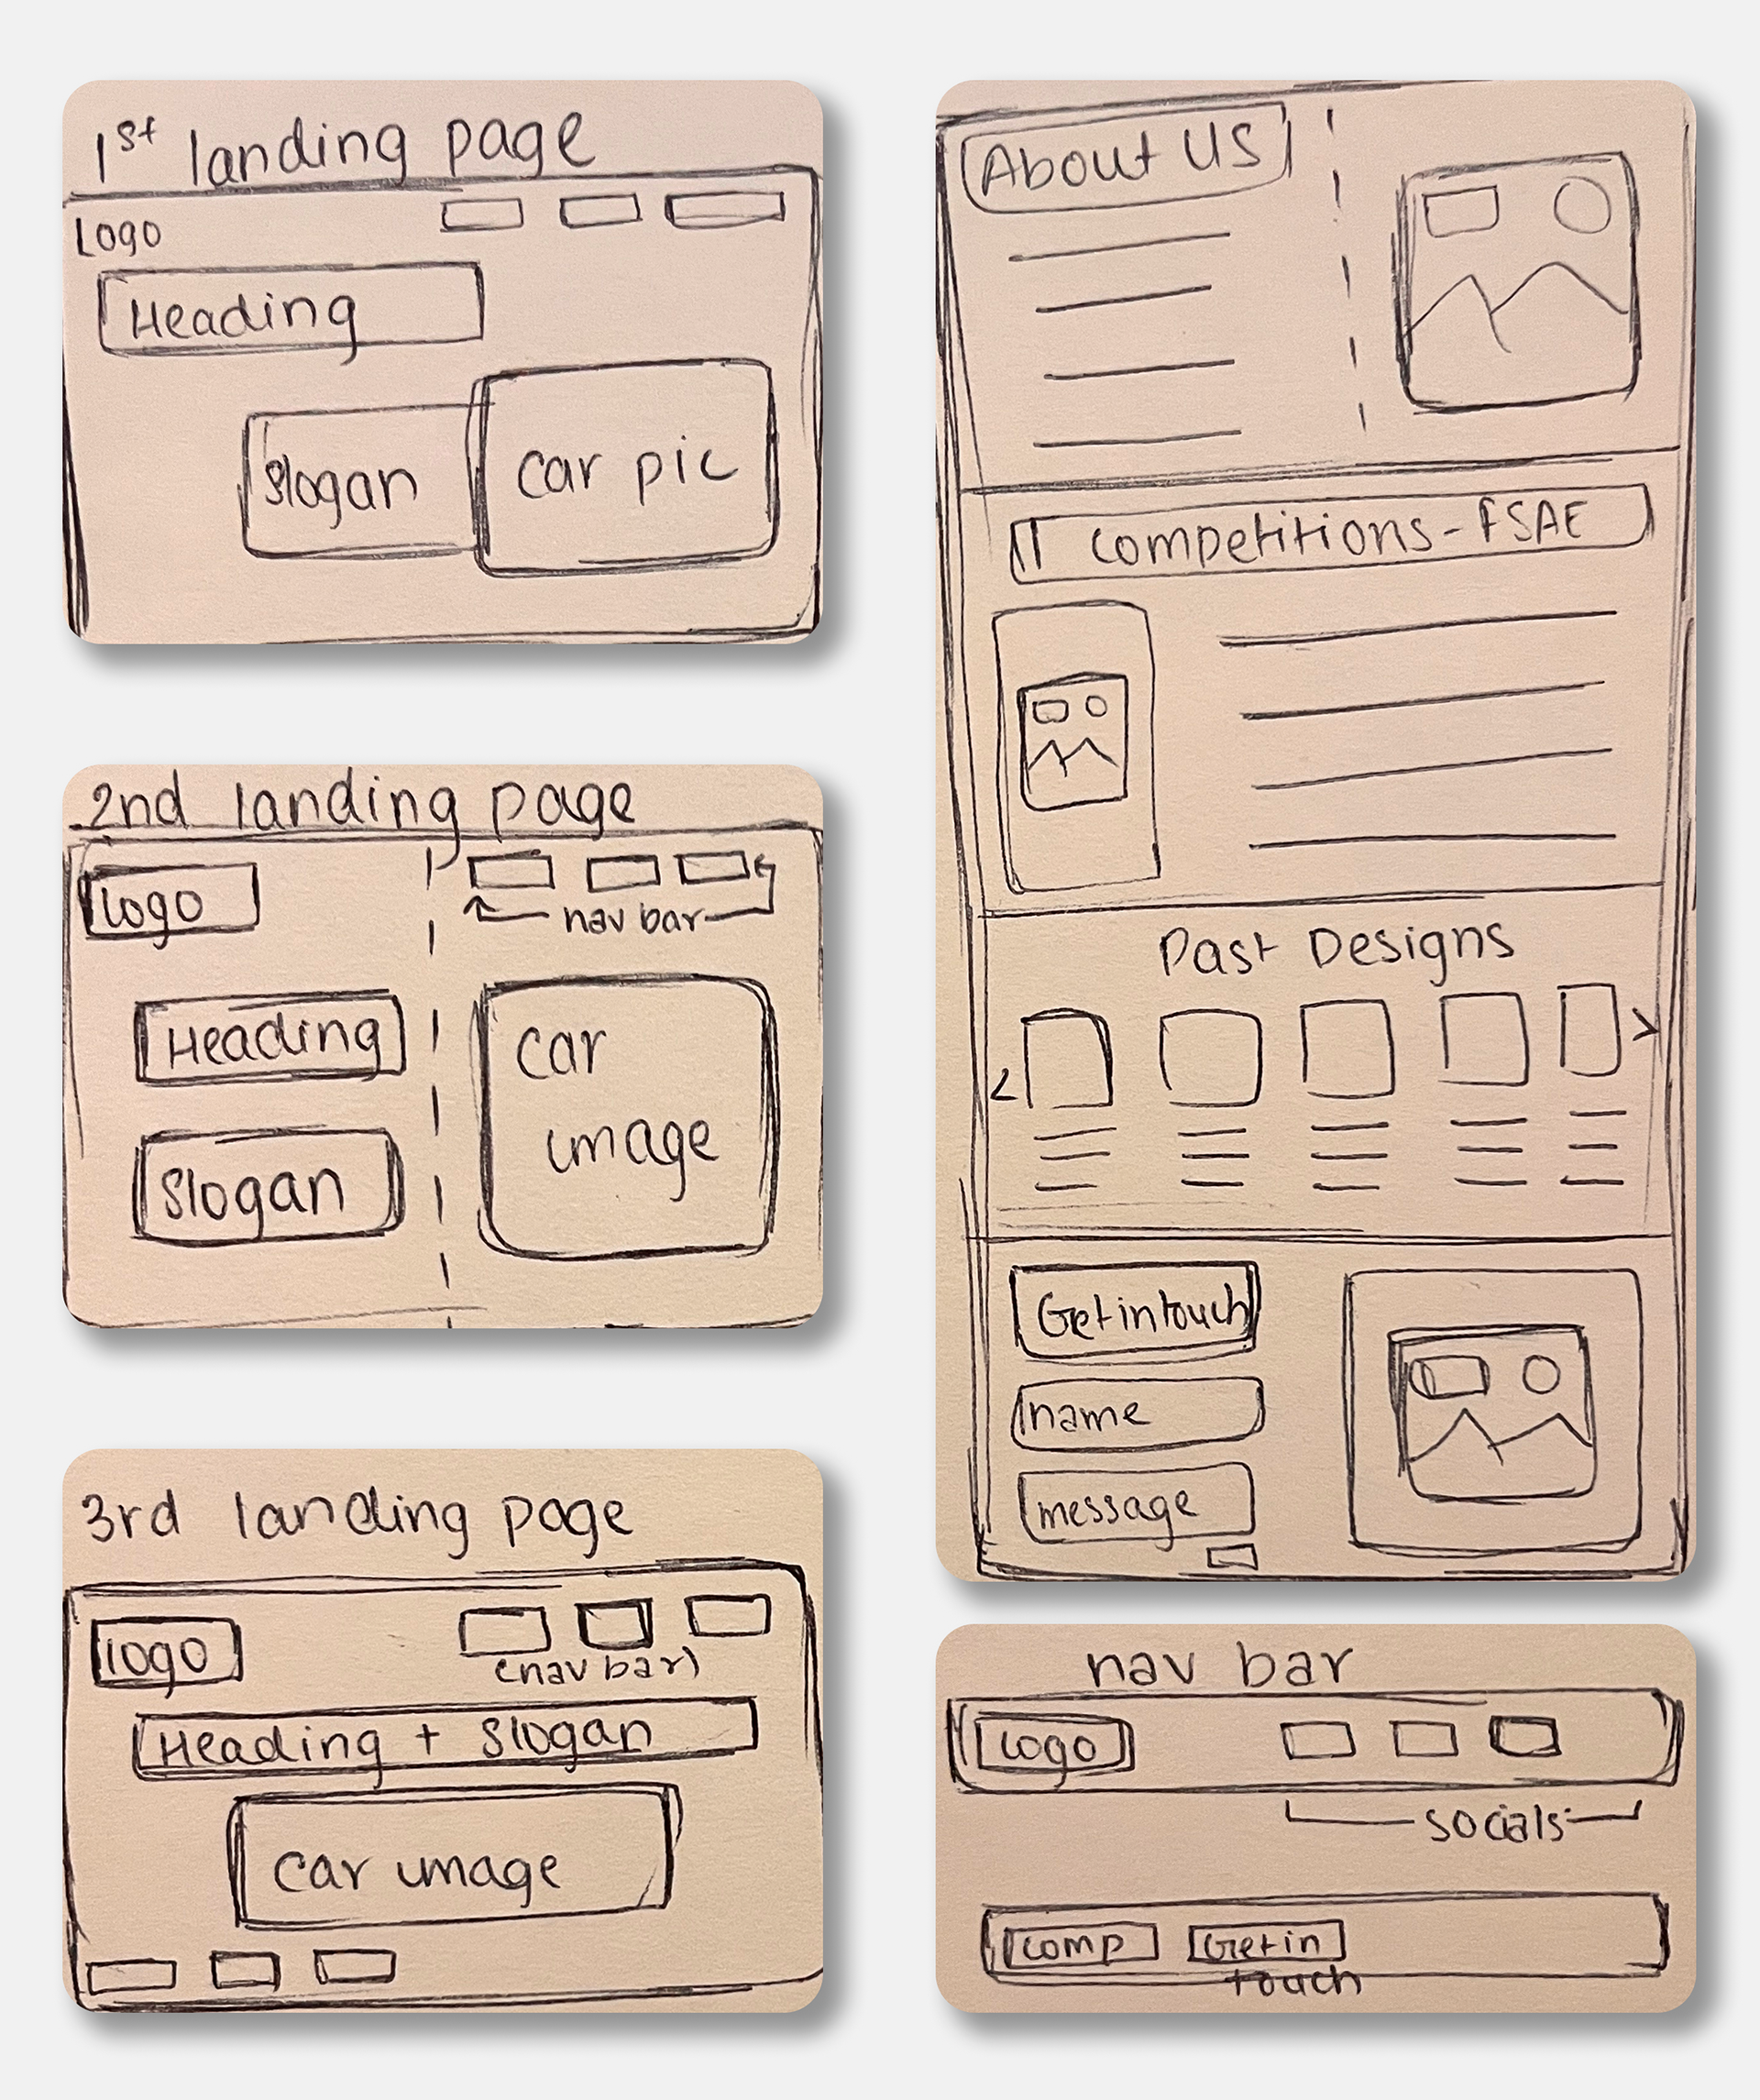 1st landing page
Logo
Heading
Slogan
car pic
2nd landing page
Logo
nav bar
Heading
Slogan
car
image
3rd landing page
logo
(nav bar)
Heading + Slogan
car image
About US
Competitions - FSAE
Past Designs
<
>
Get in touch
name
message
nav bar
Logo
socials
comp
Get in
touch